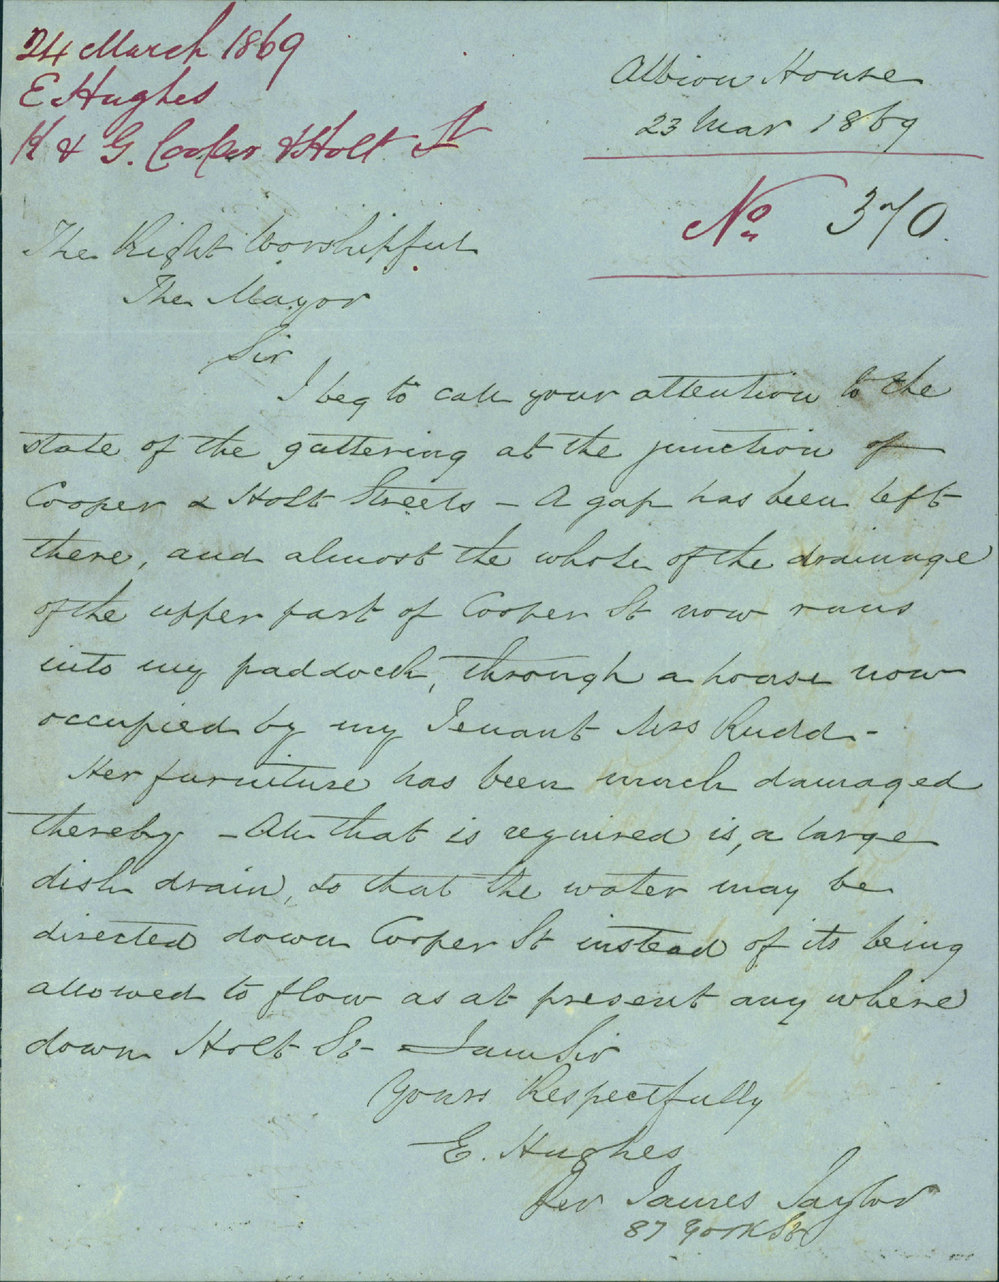 24 March 1869
E Hughes
K & G. Cooper & Holt St
Albion House
23 Mar 1869
No. 370.
The Right Worshipful
The Mayor
Sir
I beg to call your attention to the
state of the guttering at the junction of
Cooper & Holt Streets – A gap has been left
there, and almost the whole of the drainage
of the upper part of Cooper St now runs
into my paddock, through a house now
occupied by my Tenant Mrs Rudd –
Her furniture has been much damaged
thereby – All that is required is, a large
dish drain, so that the water may be
directed down Cooper St instead of its being
allowed to flow as at present any where
down Holt St – I am Sir
Yours Respectfully
E. Hughes
Per James Taylor
87 York St